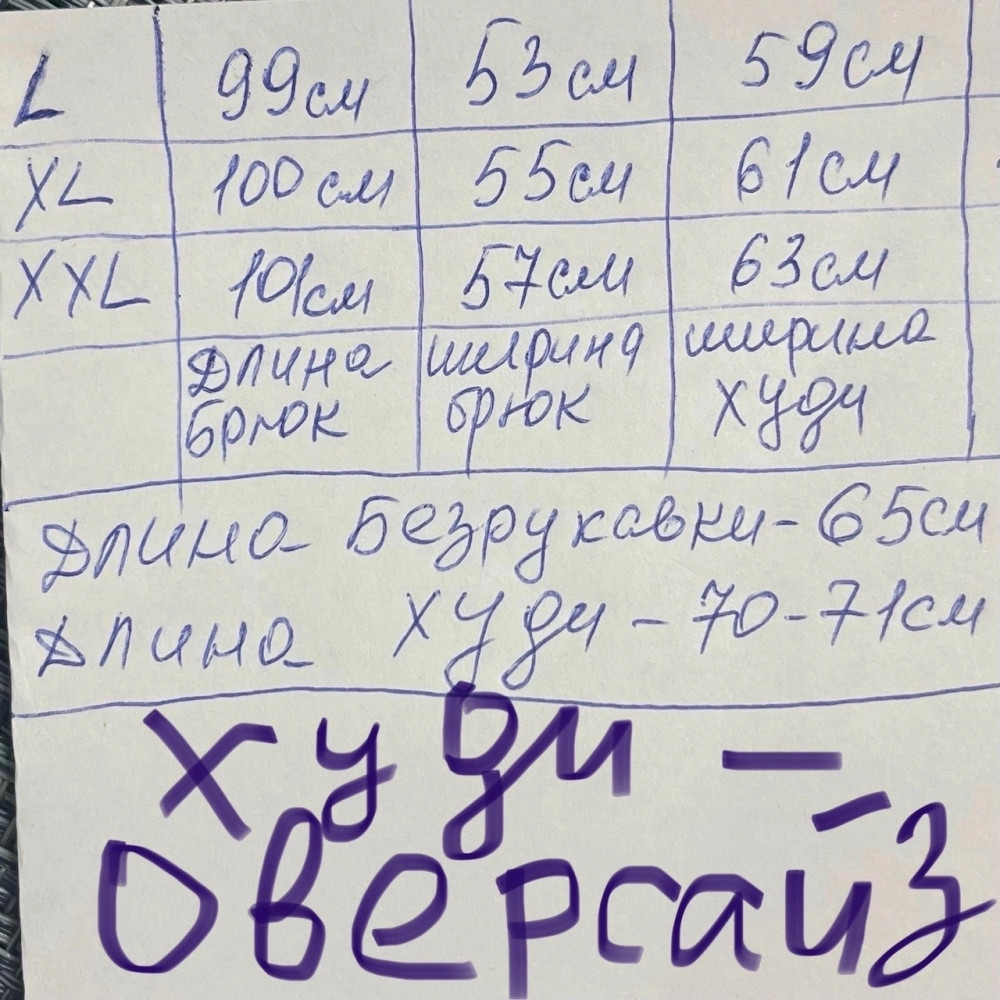 L 99см 53см 59см
XL 100см 55см 61см
XXL 101см 57см 63см
Длина ширина ширина
Брюк брюк худи
Длина Безрукавки-65см
Длина худи-70-71см
Худи -
Оверсайз